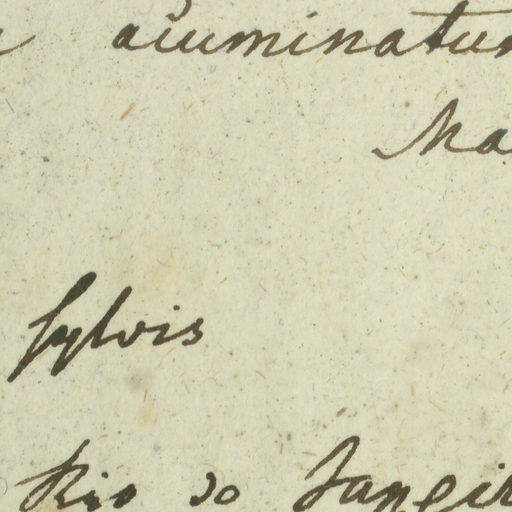 acuminatum
Ma
sylvis
Rio do Janeir